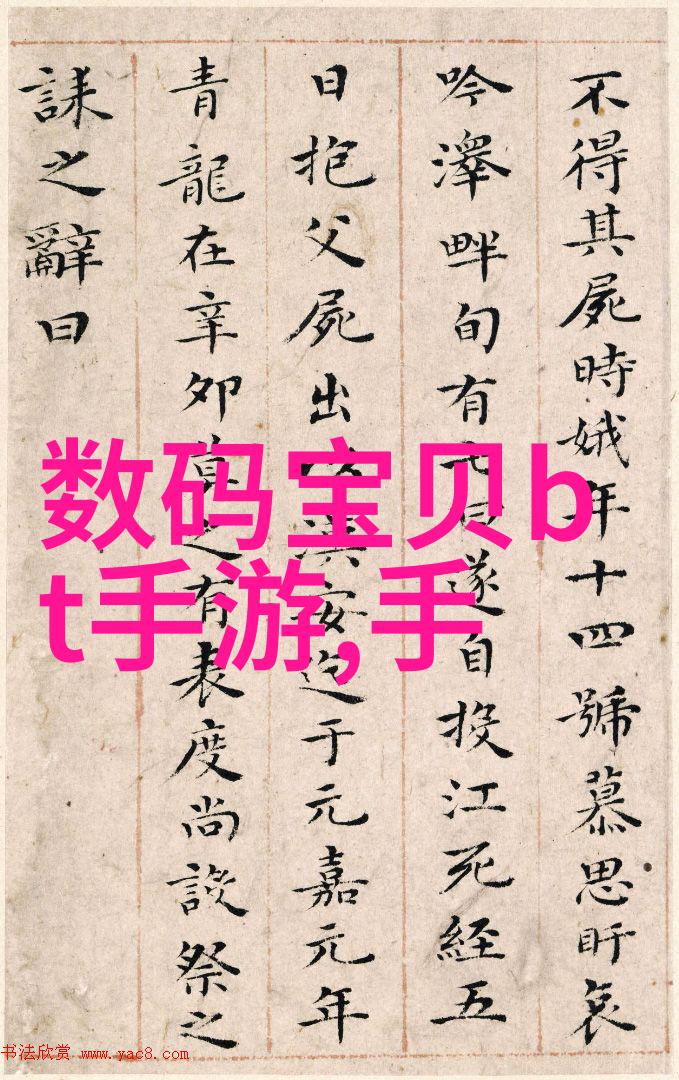 不得其屍時娥年十四號慕思盱哀
吟澤畔旬有七日遂自投江死經五
日抱父屍出以漢安迄于元嘉元年
青龍在辛卯莫之有表度尚設祭之
誄之辭曰
数码宝贝b
t手游,手
书法欣赏 www.yac8.com